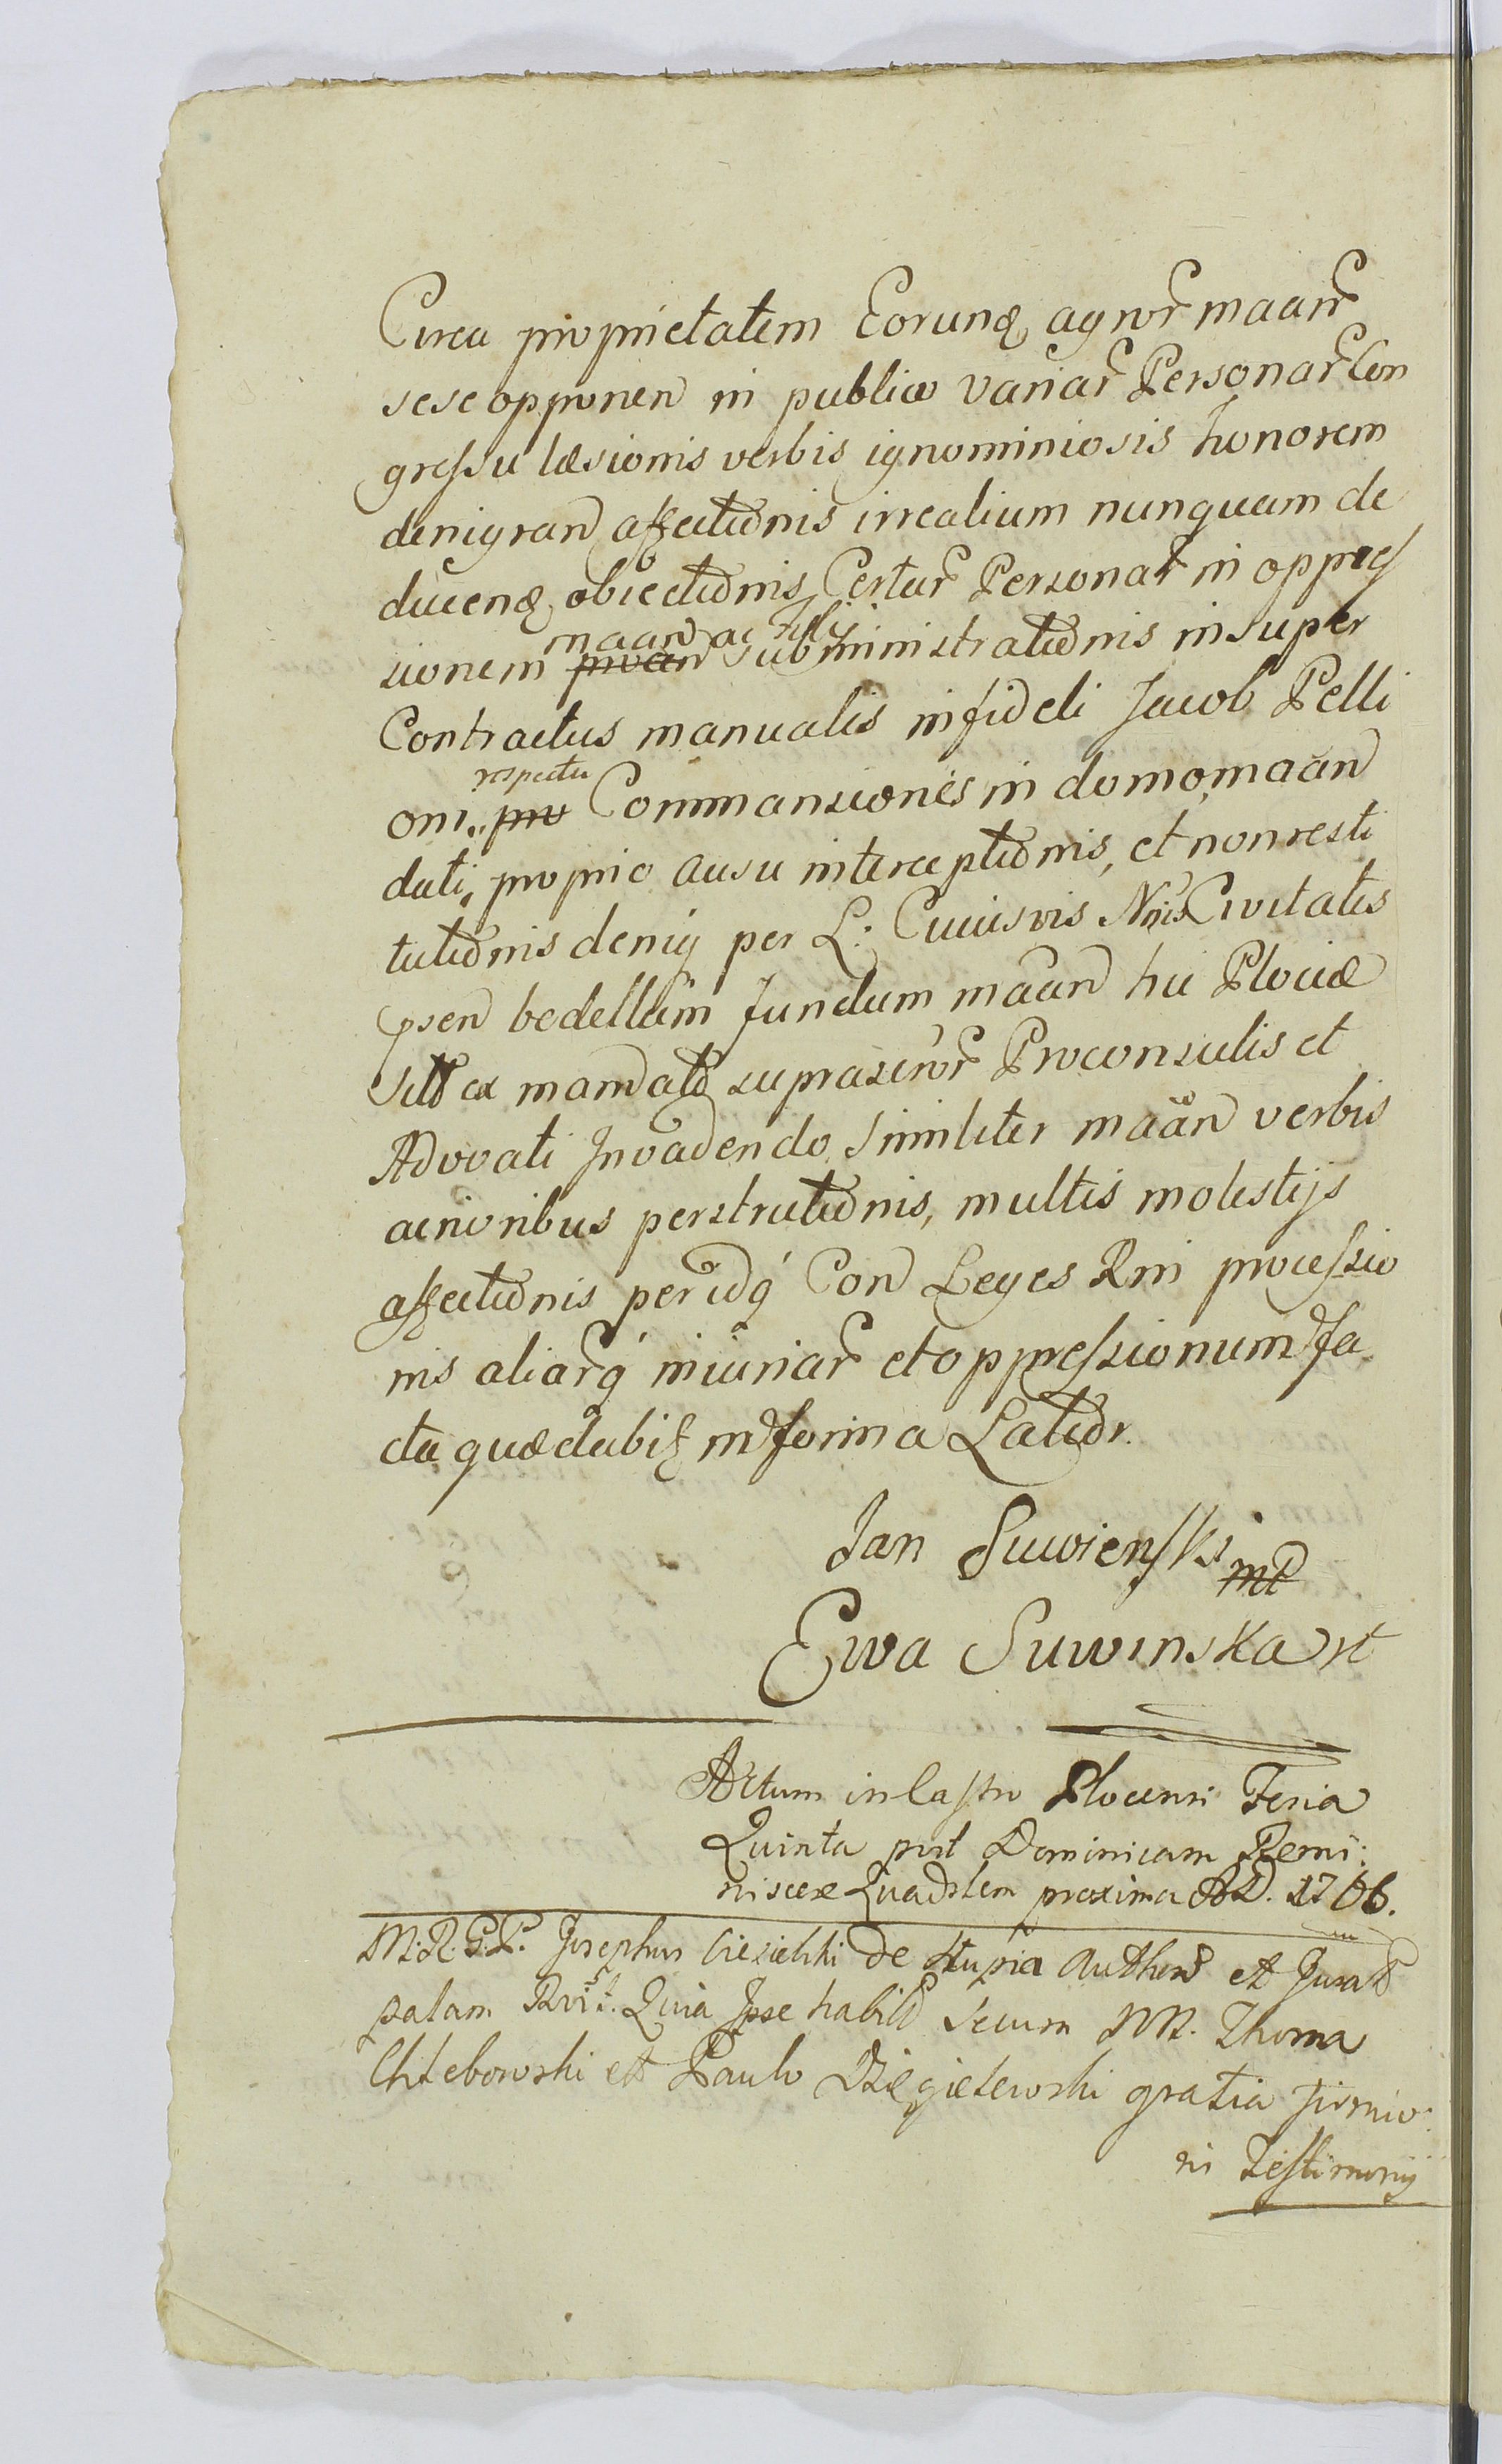 Circa proprietatem Eorund agror maar
sese opponen in publico variar Personar Con
gressu læsionis verbis ignominiosis honorem
denigran affectionis irrealium nunquam de
ducend obiectionis Certar Personar in oppres
maan ac
sionem proan subministrationis insuper
Contractus manualis infideli Jacob Pelli
respectu
oni pro Commansionis in domo maan
dati, proprio ausu interceptionis, et non resti
tutionis deniq per L: Cuiusvis Civitatis
psen bedellum fundum maan hic Plociæ
sitt ex mandato suprascror Proconsulis et
Advocati Invadendo similiter maan verbis
acrioribus perstrictionis, multis molestijs
affectionis periculoq Con Leges Rni processio
nis aliarq iniuriar et oppressionum fa
cta quædabit in forma Latior.
Jan Suwienski mp
Ewa Suwinska
Actum in Castro Plocensi Feria
Quinta post Dominicam Remi:
niscere Quadrlem proxima AD. 1766.
M. R. G. P. Josephus Ciesielski de Stupia Authen et Jurat
palam Rvit. Quia Ipse habitt secum NN. Thoma
Chlebowski et Paulo Dzięgielewski gratia firmio:
ris Testimonij